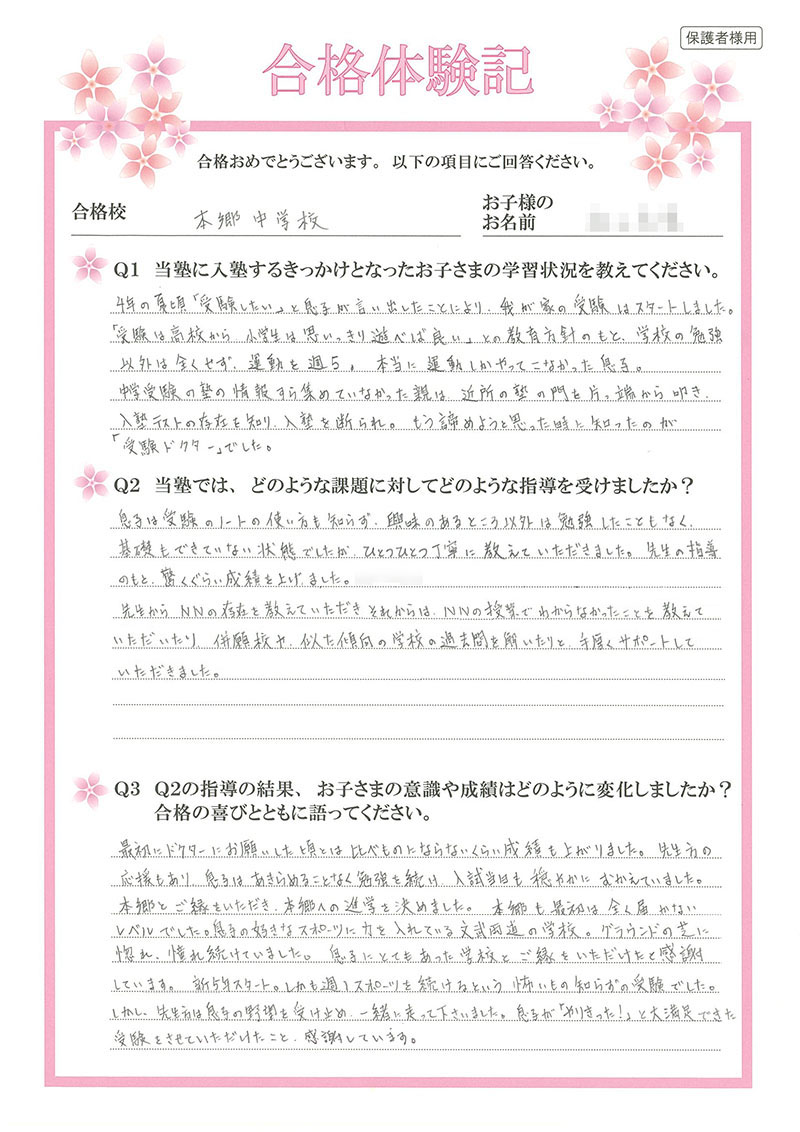 保護者様用
合格体験記
合格おめでとうございます。以下の項目にご回答ください。
合格校 本郷中学校
お子様の
お名前
Q1 当塾に入塾するきっかけとなったお子さまの学習状況を教えてください。
4年の夏頃「受験したい」と息子が言い出したことにより、我が家の受験はスタートしました。
「受験は高校から 小学生は思いっきり遊べば良い」との教育方針のもと、学校の勉強
以外は全くせず、運動を週5、本当に運動しかやってこなかった息子。
中学受験の塾の情報すら集めていなかった親は、近所の塾の門を片っ端から叩き、
入塾テストの存在を知り、入塾を断られ。もう諦めようと思った時に知ったのが
「受験ドクター」でした。
Q2 当塾では、どのような課題に対してどのような指導を受けましたか？
息子は受験のノートの使い方も知らず、興味のあるところ以外は勉強したこともなく、
基礎もできていない状態でしたが、ひとつひとつ丁寧に教えていただきました。先生の指導
のもと、驚くぐらい成績を上げました。
先生からNNの存在を教えていただきそれからは、NNの授業でわからなかったことを教えて
いただいたり、併願校や、似た傾向の学校の過去問を解いたりと、手厚くサポートして
いただきました。
Q3 Q2の指導の結果、お子さまの意識や成績はどのように変化しましたか？
合格の喜びとともに語ってください。
最初にドクターにお願いした頃とは比べものにならないくらい成績も上がりました。先生方の
応援もあり、息子はあきらめることなく勉強を続け、入試当日も穏やかにむかえていました。
本郷とご縁をいただき、本郷への進学を決めました。本郷も最初は全く届かない
レベルでした。息子の好きなスポーツに力を入れている文武両道の学校。グラウンドの芝に
惚れ、憧れ続けていました。息子にとてもあった学校とご縁をいただけたと感謝
しています。新5年スタート。しかも週1スポーツを続けるという怖いもの知らずの受験でした。
しかし、先生方は息子の野望を受け止め、一緒に走って下さいました。息子が「やりきった！」と大満足できた
受験をさせていただけたこと、感謝しています。